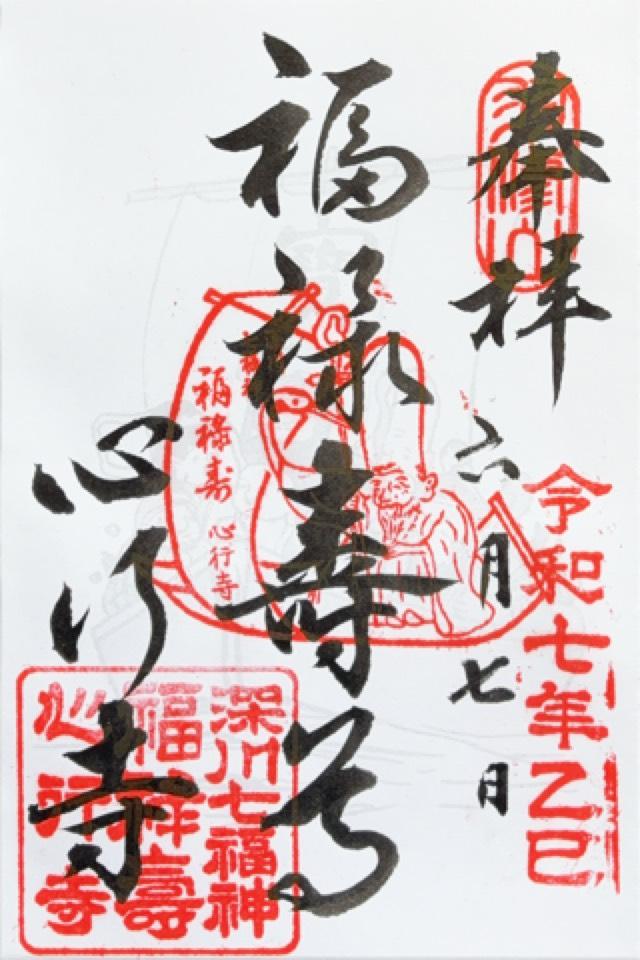 奉拝
令和七年乙巳
六月七日
福禄壽尊
福禄寿 心行寺
心行寺
深川七福神
福禄壽
心行寺